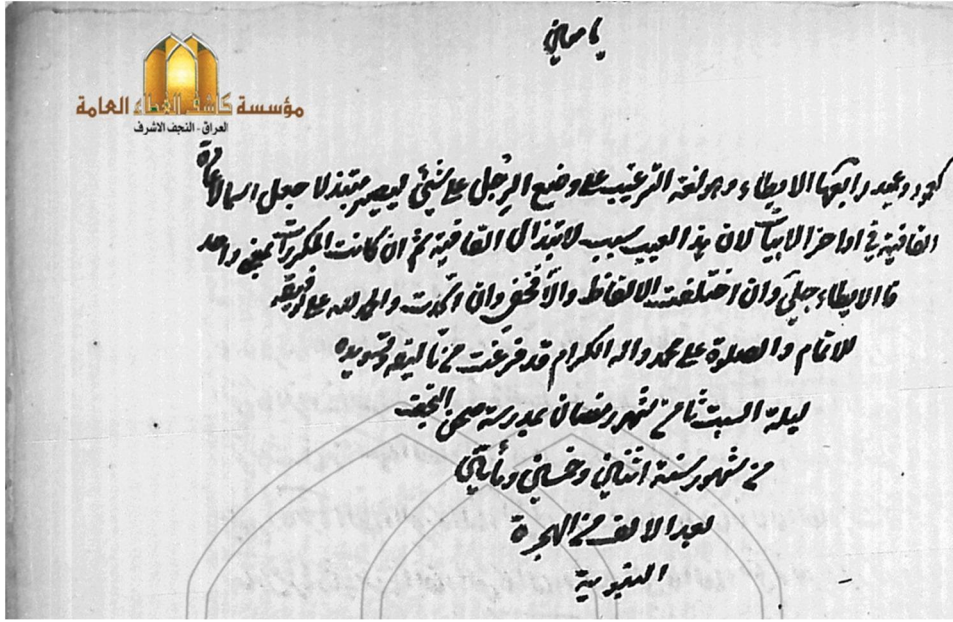 مؤسسة كاشف الغطاء العامة
العراق - النجف الاشرف
رابعها الايطاء وهو لغة الترغيب على وضع الرجل على شيئ ليصير مبتذلا جعل اسما
القافية في اواخر الابيات لان هذا العيب سبب لابتذال القافية ثم ان كانت المكررات بمعنى واحد
فالايطاء جلي وان اختلفت الالفاظ والا فخفي وان اتحدت والحمد لله على توفيقه
للاتمام والصلوة على محمد واله الكرام قد فرغت من تاليفه وتسويده
ليلة السبت ثامن شهر رمضان بمدرسة صحن النجف
من شهور سنة اثنتين وخمسين ومأتين
بعد الالف من الهجرة
النبوية